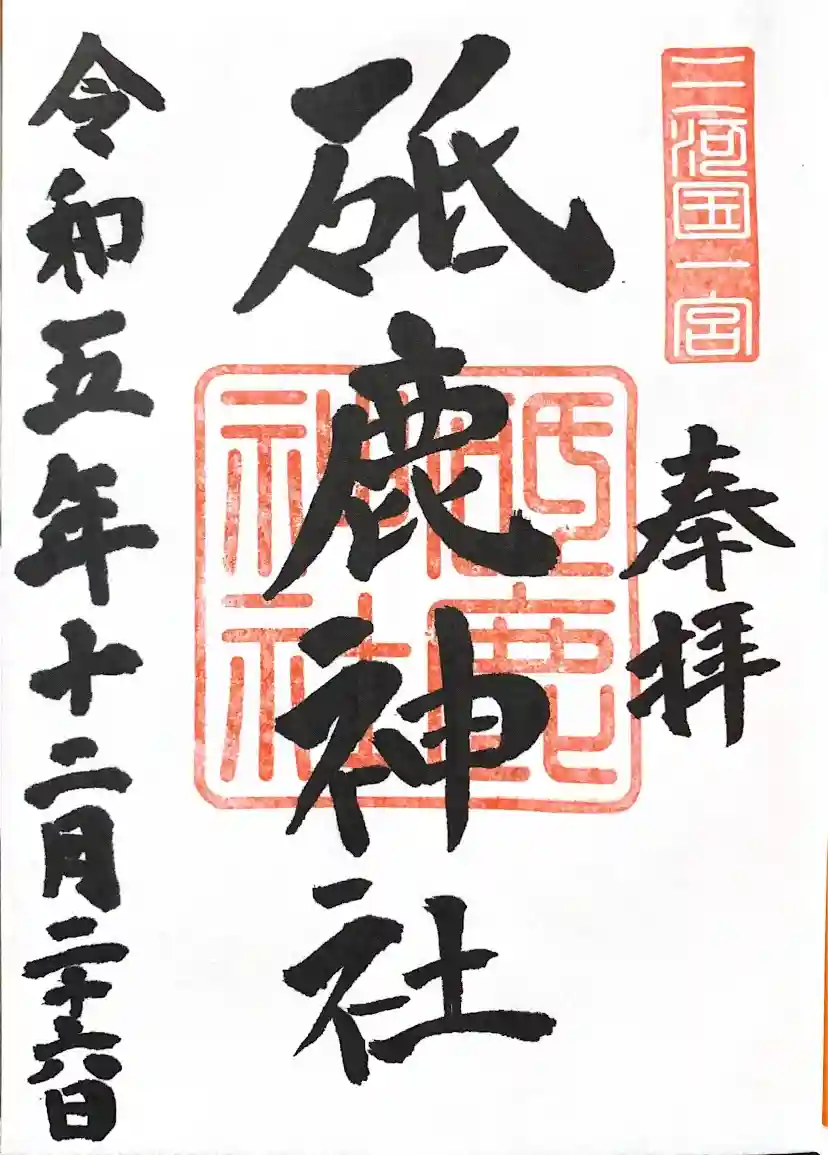 三河国一宮
奉拝
砥鹿神社
砥鹿
神社
令和五年十二月二十六日